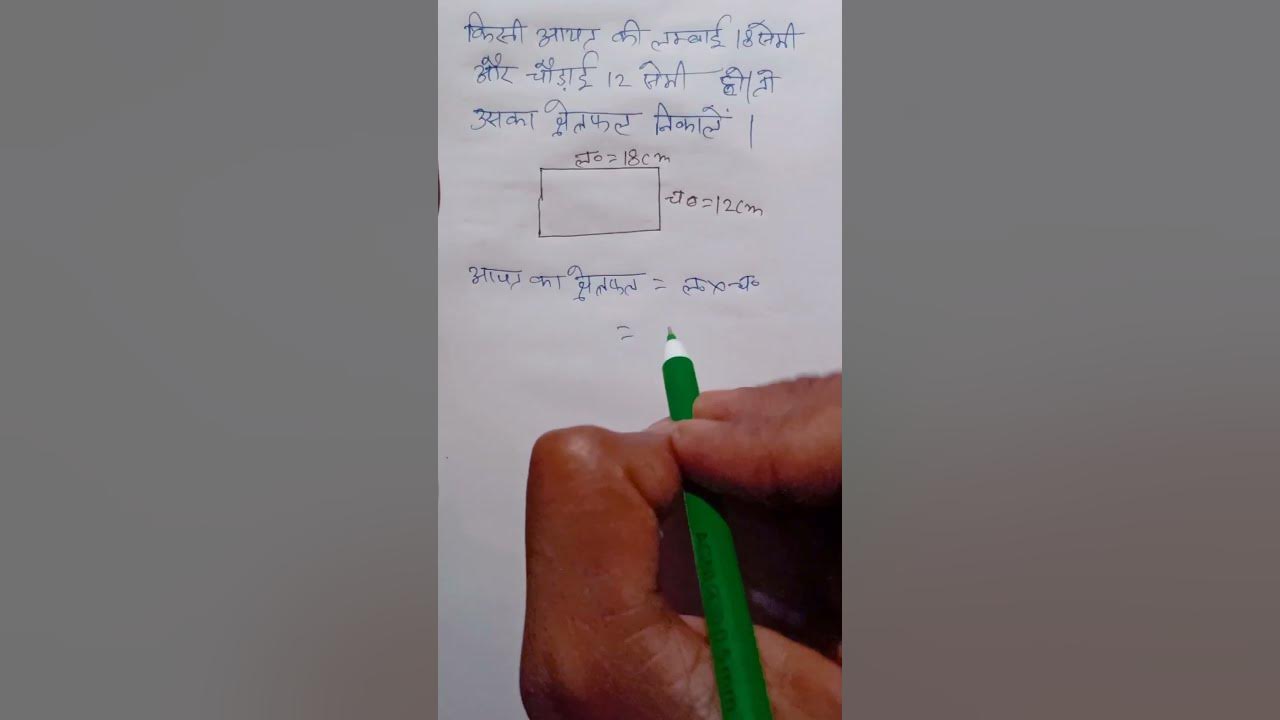 किसी आयत की लम्बाई 18 सेमी
और चौड़ाई 12 सेमी हो तो
उसका क्षेत्रफल निकालें |
ल० = 18cm
चौ० = 12cm
आयत का क्षेत्रफल = ल० × चौ०
=